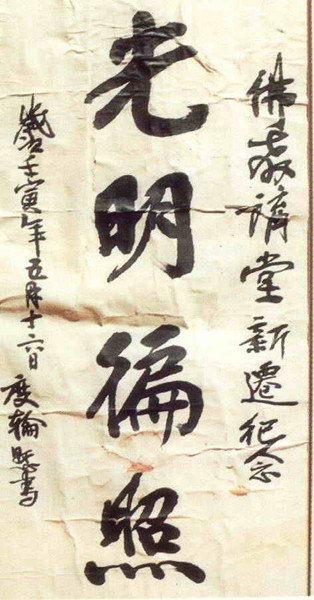 佛教講堂新遷紀念
光明徧照
歲次壬寅年五月十六日 度輪敬書